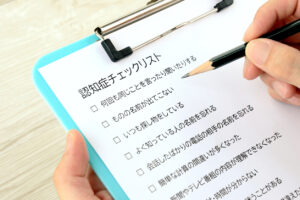 認知症チェックリスト
□ 何回も同じことを言ったり聞いたりする
□ ものの名前が出てこない
□ いつも探し物をしている
□ よく知っている人の名前を忘れる
□ 会話したばかりの電話の相手の名前を忘れる
□ 簡単な計算の間違いが多くなった
新聞やテレビ番組の内容が理解できなくなった
時間が分からない
うことがある